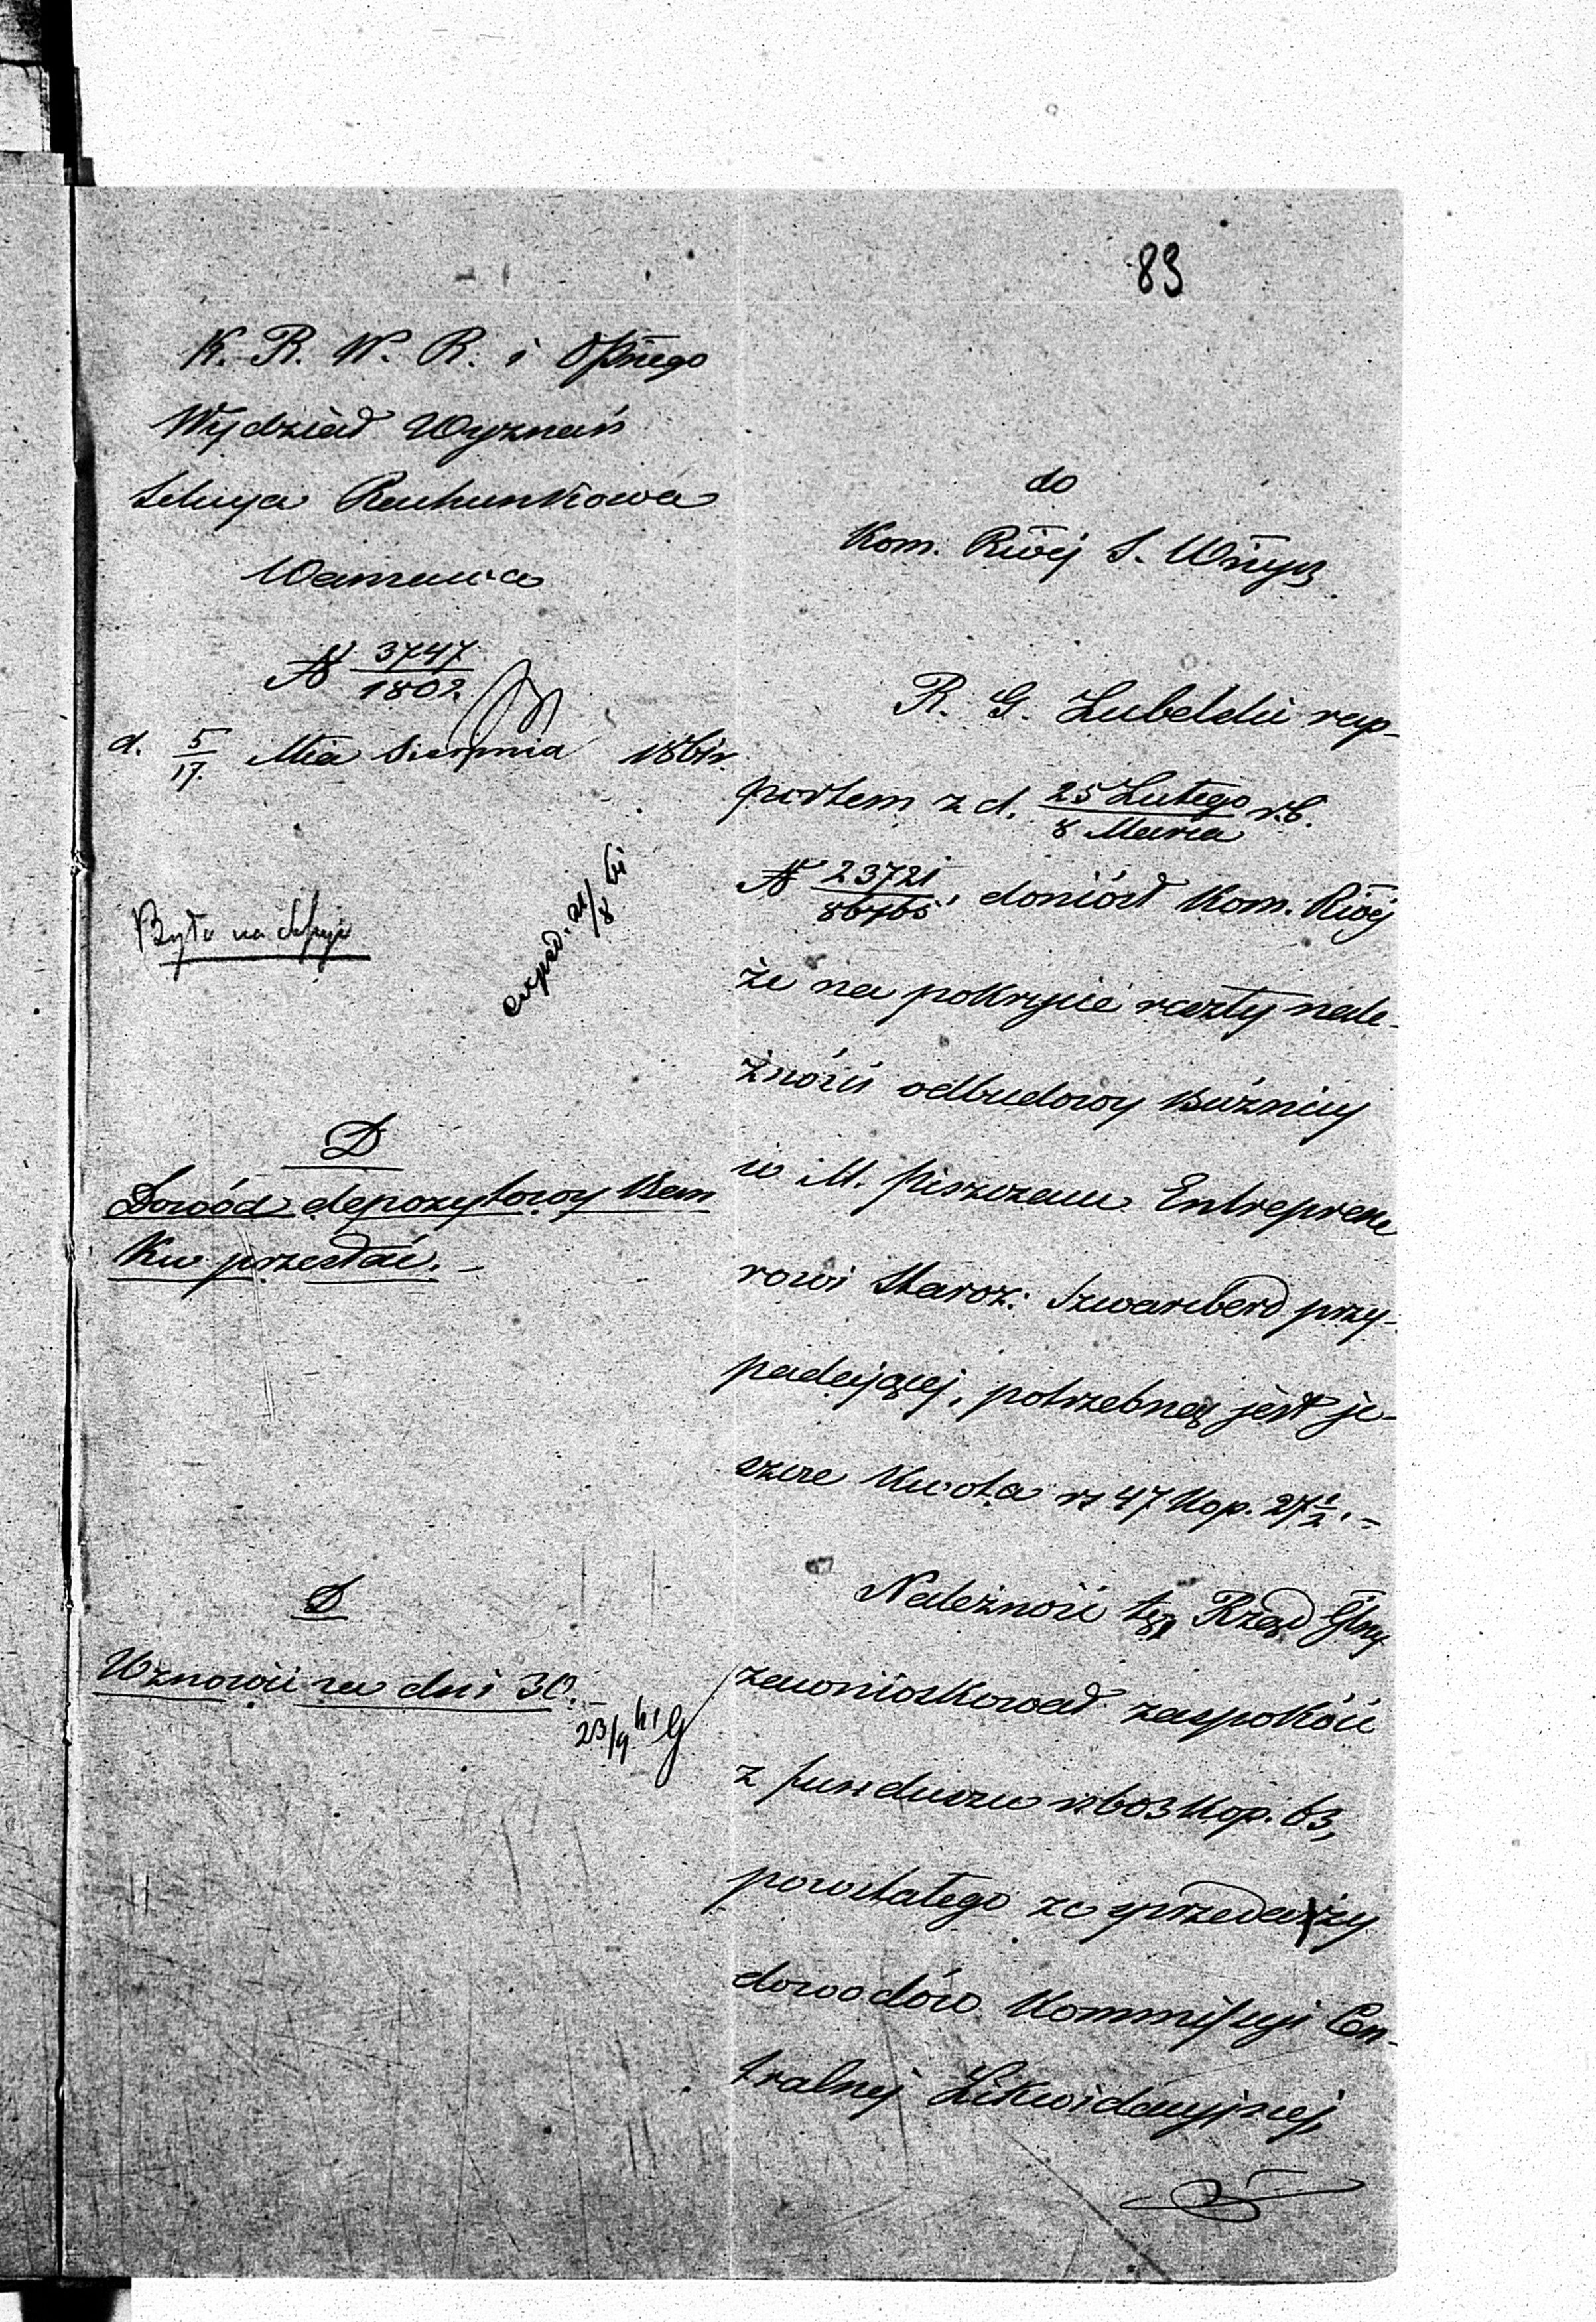 83
K. R. W. R. i Ośnego
Wydział Wyznań
Sekcya Rachunkowa
Warszawa
N 3747/1802
d. 5/17 Mca Sierpnia 1861 r.
Było na Sessyi
exped. 21/8 61
D
Dowód depozytowy Ban
ku przesłać. –
D
Wznowić za dni 30. –
23/9 61
do
Kom. Rwéj S. Wñych
R. G. Lubelski rap-
portem z d. 25 Lutego/8 Marca r.b.
N 23721/86765, doniósł Kom. Rwéj
że na pokrycie reszty nale-
żności odbudowy Bużnicy
w M. Piszczacu Entreprene
rowi Staroz: Szwarcberd przy-
padającej, potrzebną jest je-
szcze kwota rs 47 kop. 27 1/2. –
Należność tę, Rząd Glny
zawnioskował zaspokóić
z funduszu rs 603 kop. 63,
powstałego ze sprzedaży
dowodów Kommissyi Cen-
tralnej Likwidacyjnej,